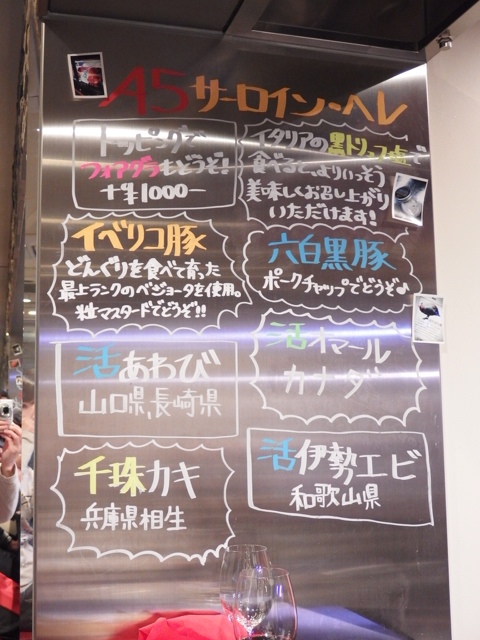 A5サーロイン・ヘレ
トッピングで
フォアグラもどうぞ!
+¥1000-
イタリアの黒トリュフ塩で
食べると、よりいっそう
美味しくお召し上がり
いただけます!
イベリコ豚
どんぐりを食べて育った
最上ランクのベジョータを使用。
粒マスタードでどうぞ!!
六白黒豚
ポークチャップでどうぞ♪
活あわび
山口県,長崎県
活オマール
カナダ
千珠カキ
兵庫県相生
活伊勢エビ
和歌山県